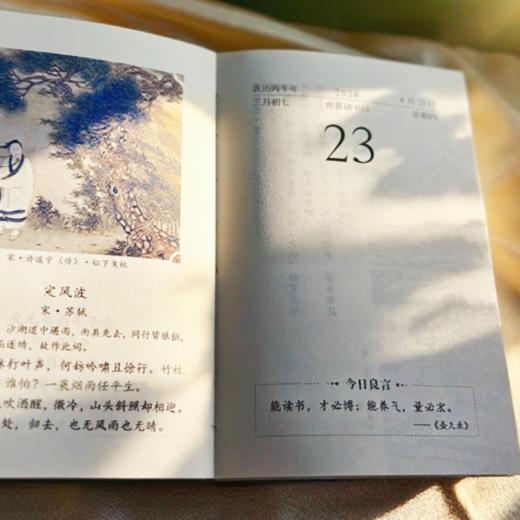 宋·许道宁（传）·松下曳杖
定风波
宋·苏轼
沙湖道中遇雨，雨具先去，同行皆狼狈，
而遂晴，故作此词。
林打叶声，何妨吟啸且徐行。竹杖
谁怕？一蓑烟雨任平生。
吹酒醒，微冷，山头斜照却相迎。
处，归去，也无风雨也无晴。
农历丙午年 2026 4月23日
三月初七 世界读书日 星期四
23
今日良言
能读书，才必博；能养气，量必宏。
——《壶天录》